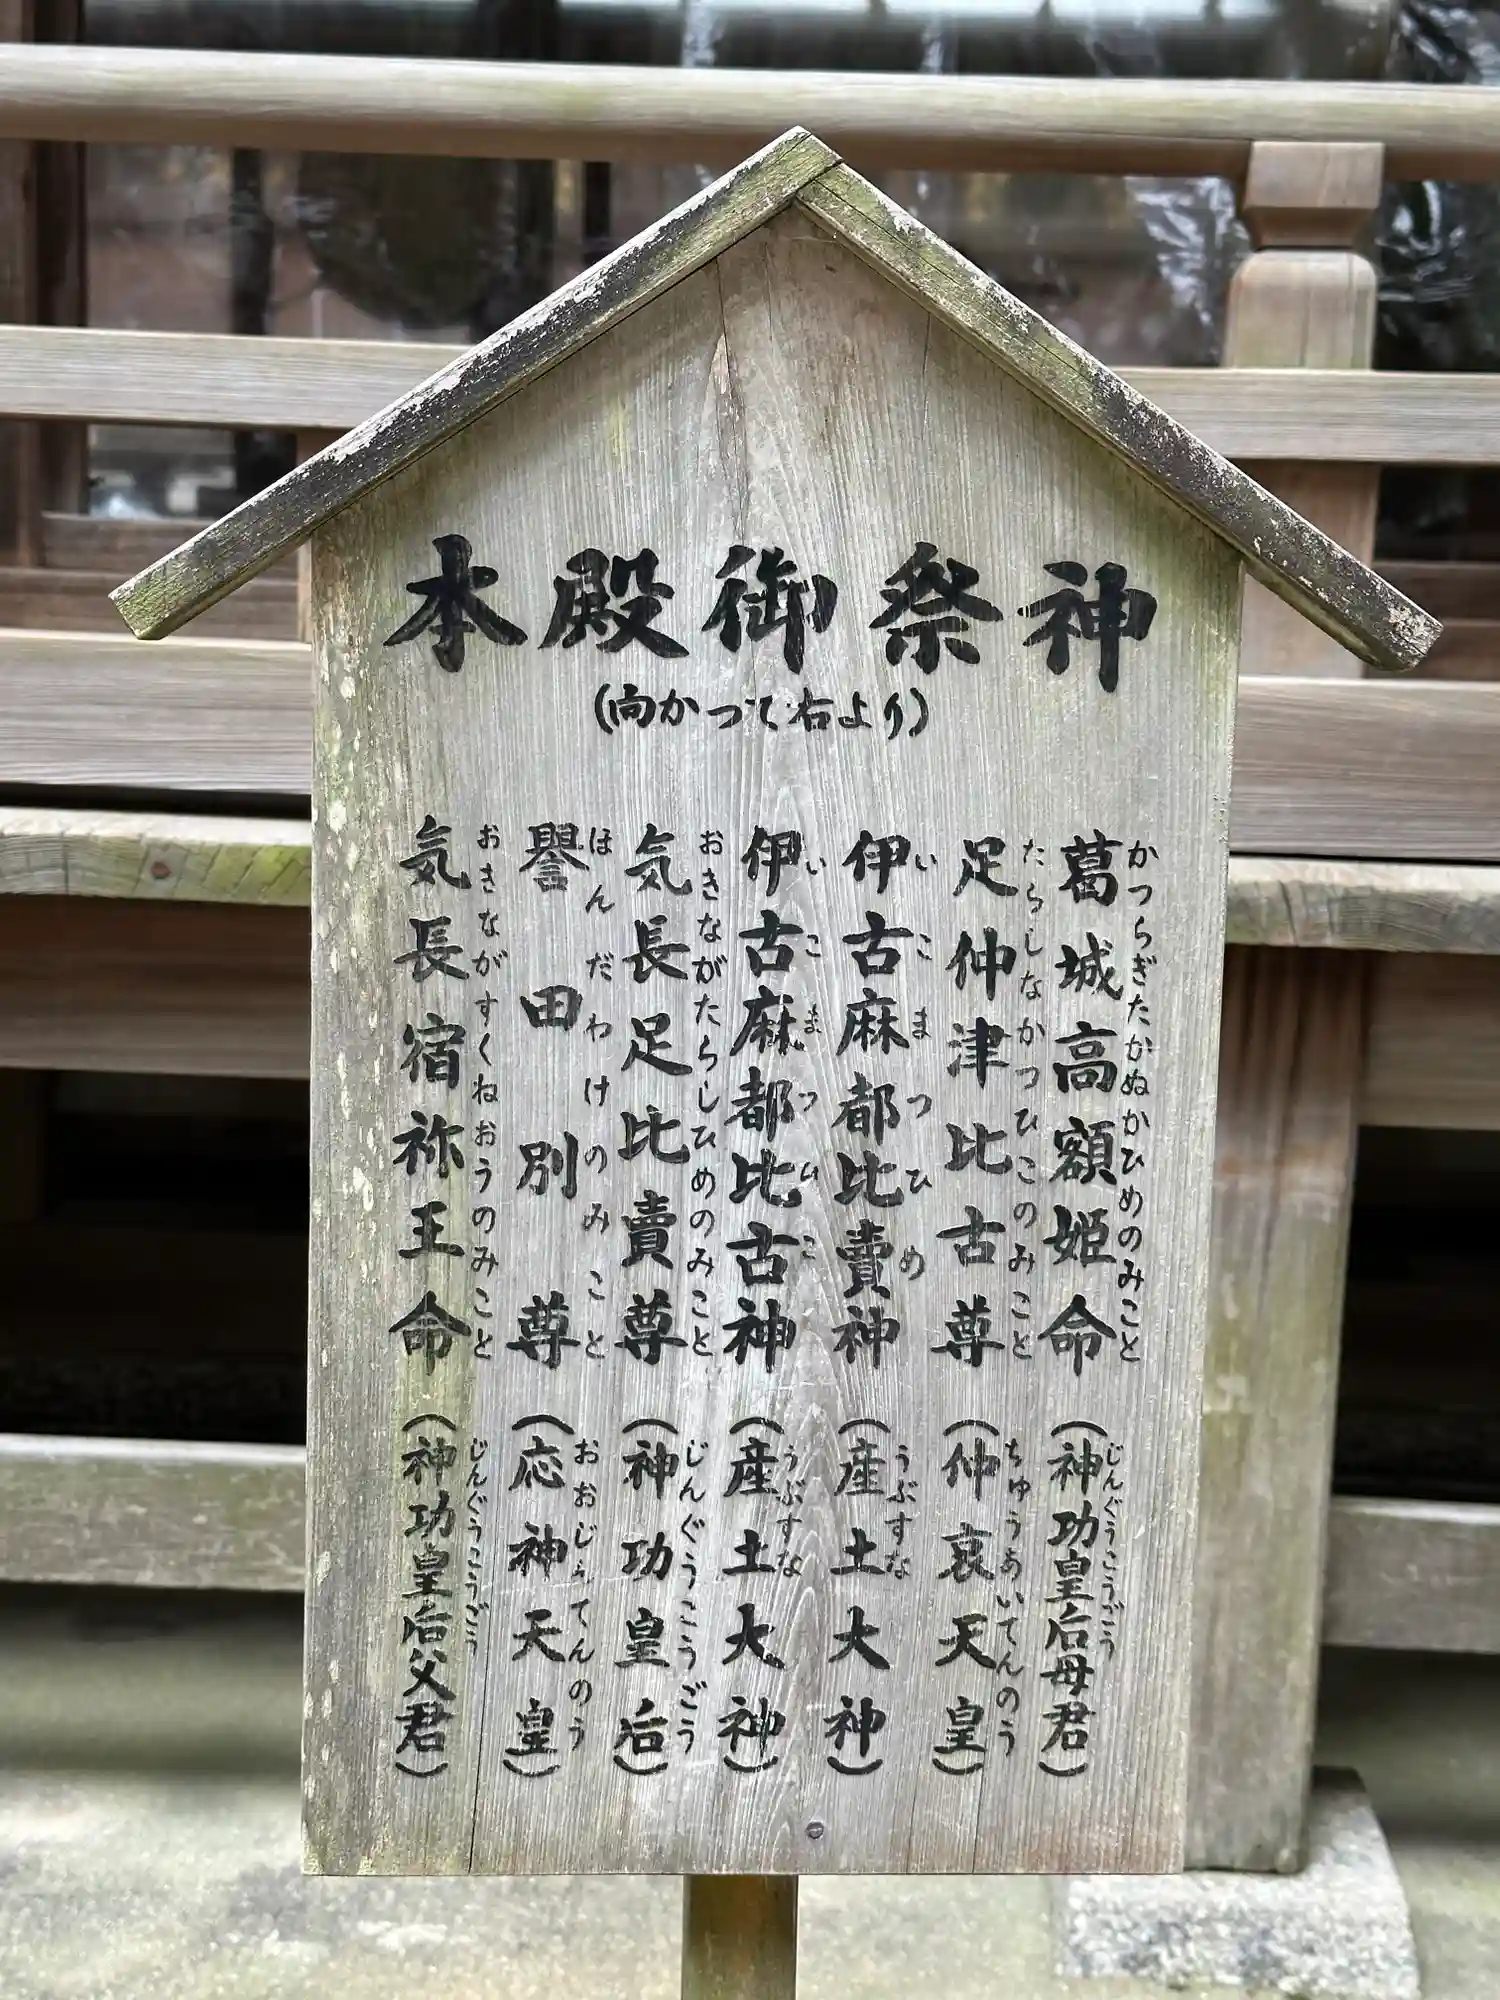 本殿御祭神
(向かって右より)
葛城高額姫命(神功皇后母君)
かつらぎたかぬかひめのみこと じんぐうこうごう
足仲津比古尊(仲哀天皇)
たらしなかつひこのみこと ちゅうあいてんのう
伊古麻都比賣神(産土大神)
いこまつひめ うぶすな
伊古麻都比古神(産土大神)
いこまつひこ うぶすな
気長足比賣尊(神功皇后)
おきながたらしひめのみこと じんぐうこうごう
誉田別尊(応神天皇)
ほんだわけのみこと おおじんてんのう
気長宿祢王命(神功皇后父君)
おきながすくねおうのみこと じんぐうこうごう